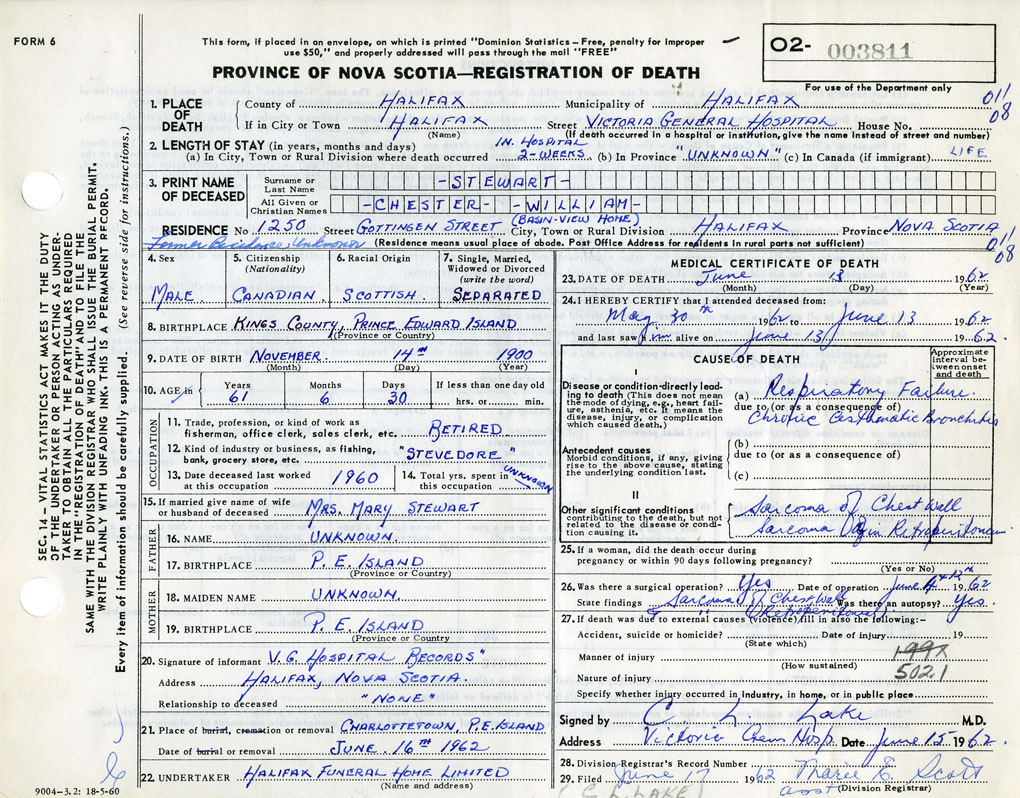 FORM 6
This form, if placed in an envelope, on which is printed "Dominion Statistics – Free, penalty for improper
use $50," and properly addressed will pass through the mail "FREE"
PROVINCE OF NOVA SCOTIA—REGISTRATION OF DEATH
O2- 003811
For use of the Department only
011
08
1. PLACE OF DEATH
County of HALIFAX Municipality of HALIFAX
If in City or Town HALIFAX Street VICTORIA GENERAL HOSPITAL House No.
(Name) (If death occurred in a hospital or institution, give the name instead of street and number)
2. LENGTH OF STAY (in years, months and days) IN HOSPITAL
(a) In City, Town or Rural Division where death occurred 2-WEEKS (b) In Province "UNKNOWN" (c) In Canada (if immigrant) LIFE
3. PRINT NAME OF DECEASED
Surname or Last Name -STEWART-
All Given or Christian Names -CHESTER- -WILLIAM-
(BASIN-VIEW HOME)
RESIDENCE No 1250 GOTTINGEN STREET City, Town or Rural Division HALIFAX Province NOVA SCOTIA
Former Residence, Unknown (Residence means usual place of abode. Post Office Address for residents in rural parts not sufficient)
011
08
4. Sex MALE
5. Citizenship (Nationality) CANADIAN
6. Racial Origin SCOTTISH
7. Single, Married, Widowed or Divorced (write the word) SEPARATED
8. BIRTHPLACE KINGS COUNTY, PRINCE EDWARD ISLAND
(Province or Country)
9. DATE OF BIRTH NOVEMBER 14TH 1900
(Month) (Day) (Year)
10. AGE in Years 61 Months 6 Days 30 If less than one day old hrs. or min.
OCCUPATION
11. Trade, profession, or kind of work as
fisherman, office clerk, sales clerk, etc. RETIRED
12. Kind of industry or business, as fishing,
bank, grocery store, etc. "STEVEDORE"
13. Date deceased last worked at this occupation 1960
14. Total yrs. spent in this occupation UNKNOWN
15. If married give name of wife
or husband of deceased MRS. MARY STEWART
FATHER
16. NAME UNKNOWN.
17. BIRTHPLACE P. E. ISLAND
(Province or Country)
MOTHER
18. MAIDEN NAME UNKNOWN.
19. BIRTHPLACE P. E. ISLAND
(Province or Country
20. Signature of informant V.G. HOSPITAL RECORDS"
Address HALIFAX, NOVA SCOTIA.
Relationship to deceased "NONE"
21. Place of burial, cremation or removal CHARLOTTETOWN, P.E. ISLAND
Date of burial or removal JUNE 16TH 1962
22. UNDERTAKER HALIFAX FUNERAL HOME LIMITED
(Name and address)
9004-3.2: 18-5-60
MEDICAL CERTIFICATE OF DEATH
23. DATE OF DEATH June 13 1962
(Month) (Day) (Year)
24. I HEREBY CERTIFY that I attended deceased from:
May 30th 1962 to June 13 1962
and last saw him alive on June 13 1962.
CAUSE OF DEATH
Approximate interval between onset and death
I
Disease or condition-directly leading to death (This does not mean the mode of dying, e.g., heart failure, asthenia, etc. It means the disease, injury, or complication which caused death.)
(a) Respiratory Failure.
due to (or as a consequence of)
Chronic Asthmatic Bronchitis
Antecedent causes
Morbid conditions, if any, giving rise to the above cause, stating the underlying condition last.
(b)
due to (or as a consequence of)
(c)
II
Other significant conditions
contributing to the death, but not related to the disease or condition causing it.
Sarcoma of Chest Wall
Sarcoma Retroperitoneum
25. If a woman, did the death occur during
pregnancy or within 90 days following pregnancy?
(Yes or No)
26. Was there a surgical operation? Yes Date of operation June 4 + 12th 1962
State findings Sarcoma of Chest Wall Was there an autopsy? Yes.
& " (Retroperitoneal)
27. If death was due to external causes (violence) fill in also the following:-
Accident, suicide or homicide? Date of injury 19
(State which)
Manner of injury 199X
(How sustained) 502.1
Nature of injury
Specify whether injury occurred in industry, in home, or in public place
Signed by C. L. Lake M.D.
Address Victoria Gen Hosp. Date June 15 1962.
28. Division Registrar's Record Number
29. Filed June 17 1962 Marie E. Scott
(C L. LAKE) asst (Division Registrar)
SEC. 14 - VITAL STATISTICS ACT MAKES IT THE DUTY
OF THE UNDERTAKER OR PERSON ACTING AS UNDER-
TAKER TO OBTAIN ALL THE PARTICULARS REQUIRED
IN THE "REGISTRATION OF DEATH" AND TO FILE THE
SAME WITH THE DIVISION REGISTRAR WHO SHALL ISSUE THE BURIAL PERMIT.
WRITE PLAINLY WITH UNFADING INK. THIS IS A PERMANENT RECORD.
Every item of information should be carefully supplied. (See reverse side for instructions.)